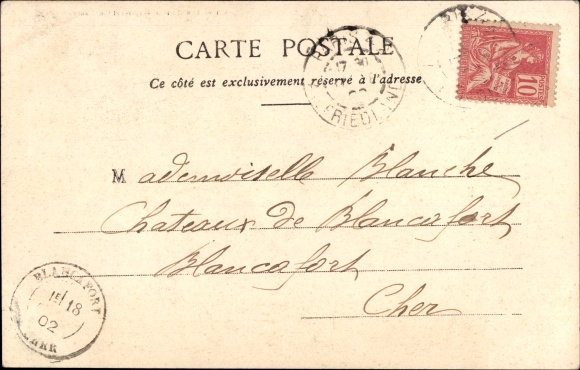 CARTE POSTALE
Ce côté est exclusivement réservé à l'adresse
PARIS
17
FRIEDLAND
10
POSTES
Mademoiselle Blanche
Chateaux de Blancafort
Blancafort
Cher
BLANCAFORT
18
02
CHER